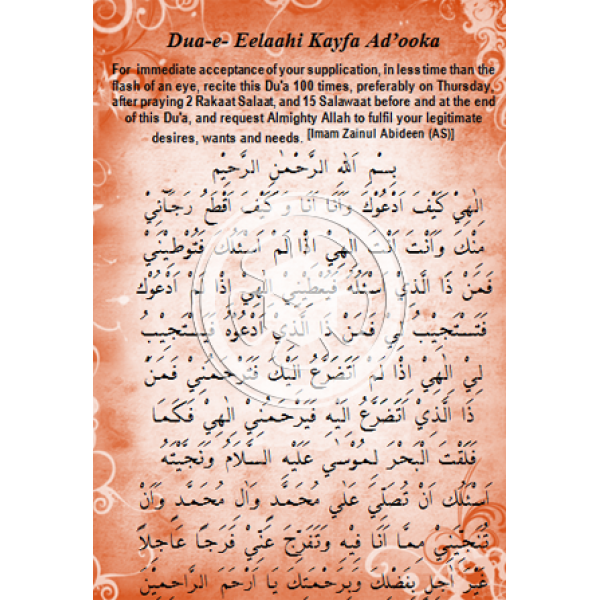 Dua-e- Eelaahi Kayfa Ad'ooka
For immediate acceptance of your supplication, in less time than the
flash of an eye, recite this Du'a 100 times, preferably on Thursday,
after praying 2 Rakaat Salaat, and 15 Salawaat before and at the end
of this Du'a, and request Almighty Allah to fulfil your legitimate
desires, wants and needs. [Imam Zainul Abideen (AS)]
بِسْمِ اللهِ الرَّحْمٰنِ الرَّحِيْمِ
اِلٰهِيْ كَيْفَ اَدْعُوْكَ وَاَنَا اَنَا وَ كَيْفَ اَقْطَعُ رَجَآئِيْ
مِنْكَ وَاَنْتَ اَنْتَ اِلٰهِيْ اِذَا لَمْ اَسْئَلُكَ فَتُوْطِيْنِيْ
فَمَنْ ذَا الَّذِيْ اَسْئَلُهُ فَيُعْطِيْنِيْ اِلٰهِيْ اِذَا لَمْ اَدْعُوْكَ
فَتَسْتَجِيْبُ لِيْ فَمَنْ ذَا الَّذِيْ اَدْعُوْهُ فَيَسْتَجِيْبُ
لِيْ اِلٰهِيْ اِذَا لَمْ اَتَضَرَّعُ اِلَيْكَ فَتَرْحَمُنِيْ فَمَنْ
ذَا الَّذِيْ اَتَضَرَّعُ اِلَيْهِ فَيَرْحَمُنِيْ اِلٰهِيْ فَكَمَا
فَلَقْتَ الْبَحْرَ لِمُوْسٰي عَلَيْهِ السَّلَامُ وَنَجَّيْتَهُ
اَسْئَلُكَ اَنْ تُصَلِّيَ عَلٰي مُحَمَّدٍ وَاٰلِ مُحَمَّدٍ وَاَنْ
تُنَجِّيَنِيْ مِمَّا اَنَا فِيْهِ وَتُفَرِّجَ عَنِّيْ فَرَجًا عَاجِلًا
غَيْرَ اٰجِلٍ بِفَضْلِكَ وَبِرَحْمَتِكَ يَا اَرْحَمَ الرَّاحِمِيْنَ